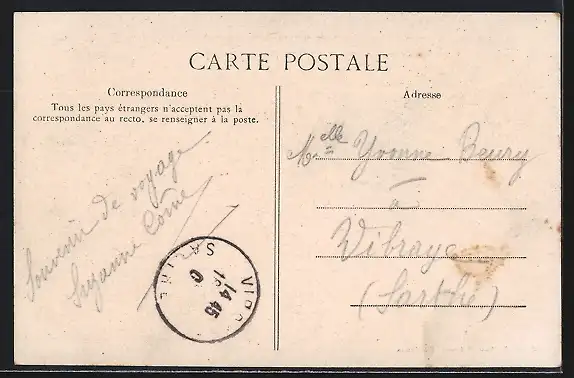 CARTE POSTALE
Correspondance
Tous les pays étrangers n'acceptent pas la
correspondance au recto, se renseigner à la poste.
Souvenir de voyage
Suzanne
Adresse
Melle Yvonne Beury
à
Vibraye
(Sarthe)
14 45